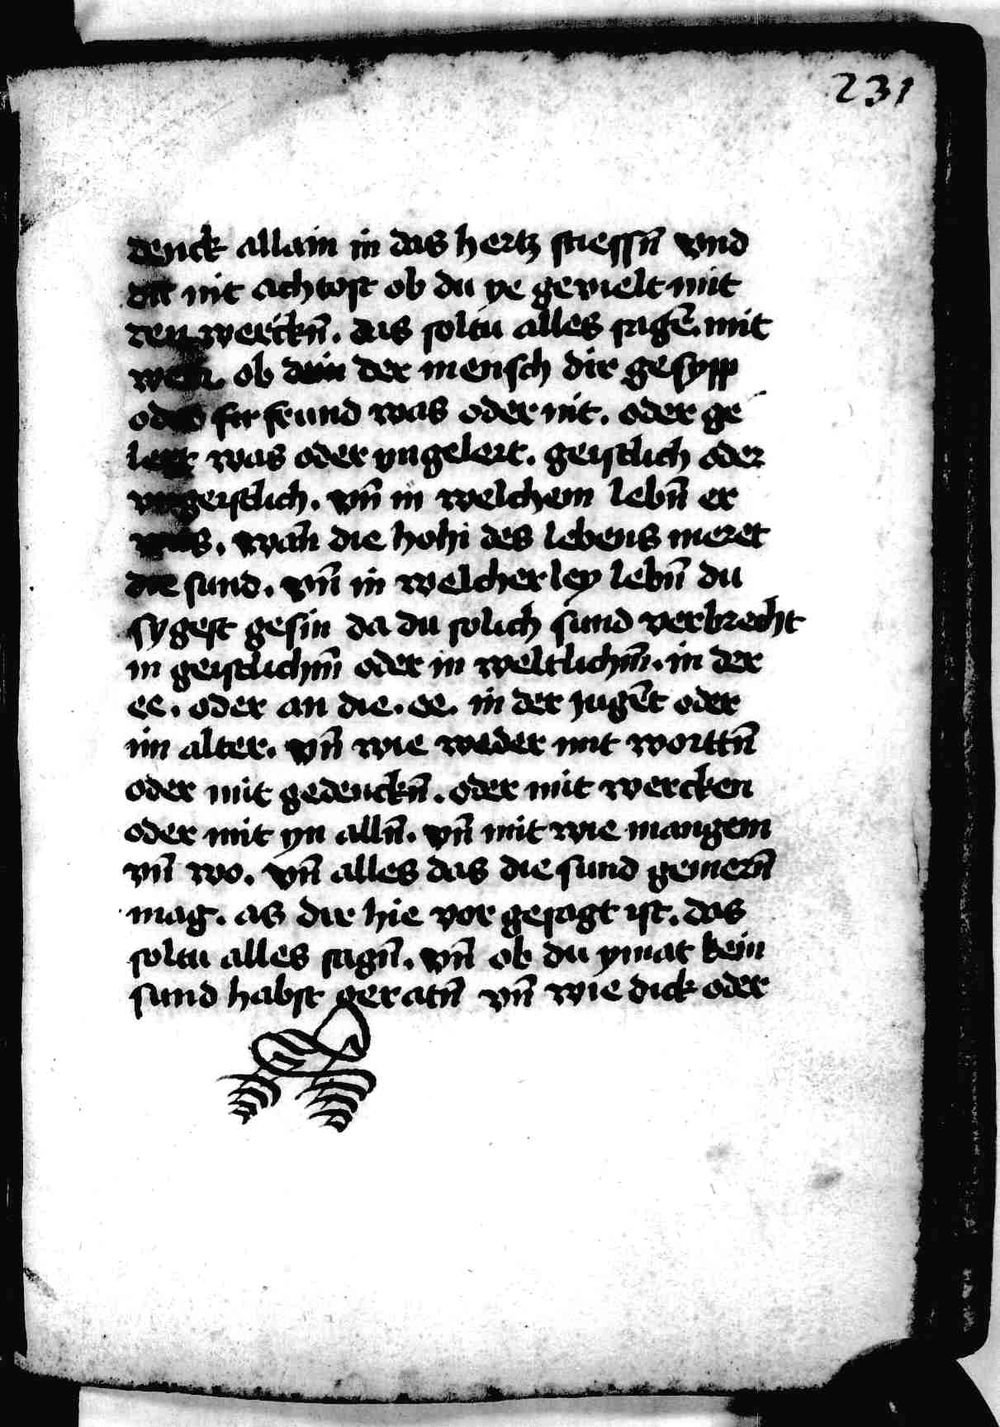 231
denck allain in das hertz stiessn̄ vnd
du nit achtost ob du ye gevielt mit
den werckn̄. das soltu alles sagē. mit
wem. ob der mensch dir gesypp
oder fır frund was oder nit. oder ge
lert was oder vngelert. geistlich oder
vngeistlich. vn̄ in welchem lebn̄ er
was. wan̄ die hohi des lebens meret
die sund. vn̄ in welcherley lebn̄ du
sygest gesin da du solich sund verbrecht
in geistlichm̄ oder in weltlichm̄. in der
ee. oder an die. ee. in der jugēt oder
im alter. vn̄ wie weder mit worttn̄
oder mit gedenckn̄. oder mit wercken
oder mit yn alln̄. vn̄ mit wie mangem
vn̄ wo. vn̄ alles das die sund gemern̄
mag. as dir hie vor gesagt ist. das
soltu alles sagn̄. vn̄ ob du ymat kein
sund habst geratn̄ vn̄ wie dick oder